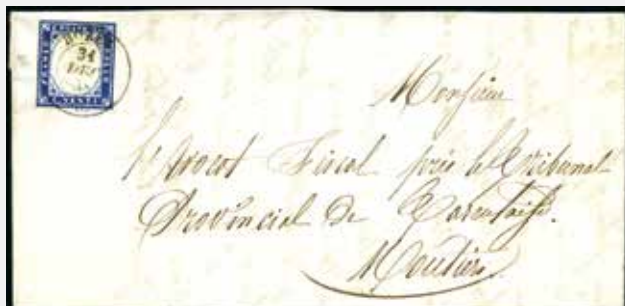 31
Monsieur
l'Avocat Fiscal près le Tribunal
Provincial de Tarentaise.
Moutiers